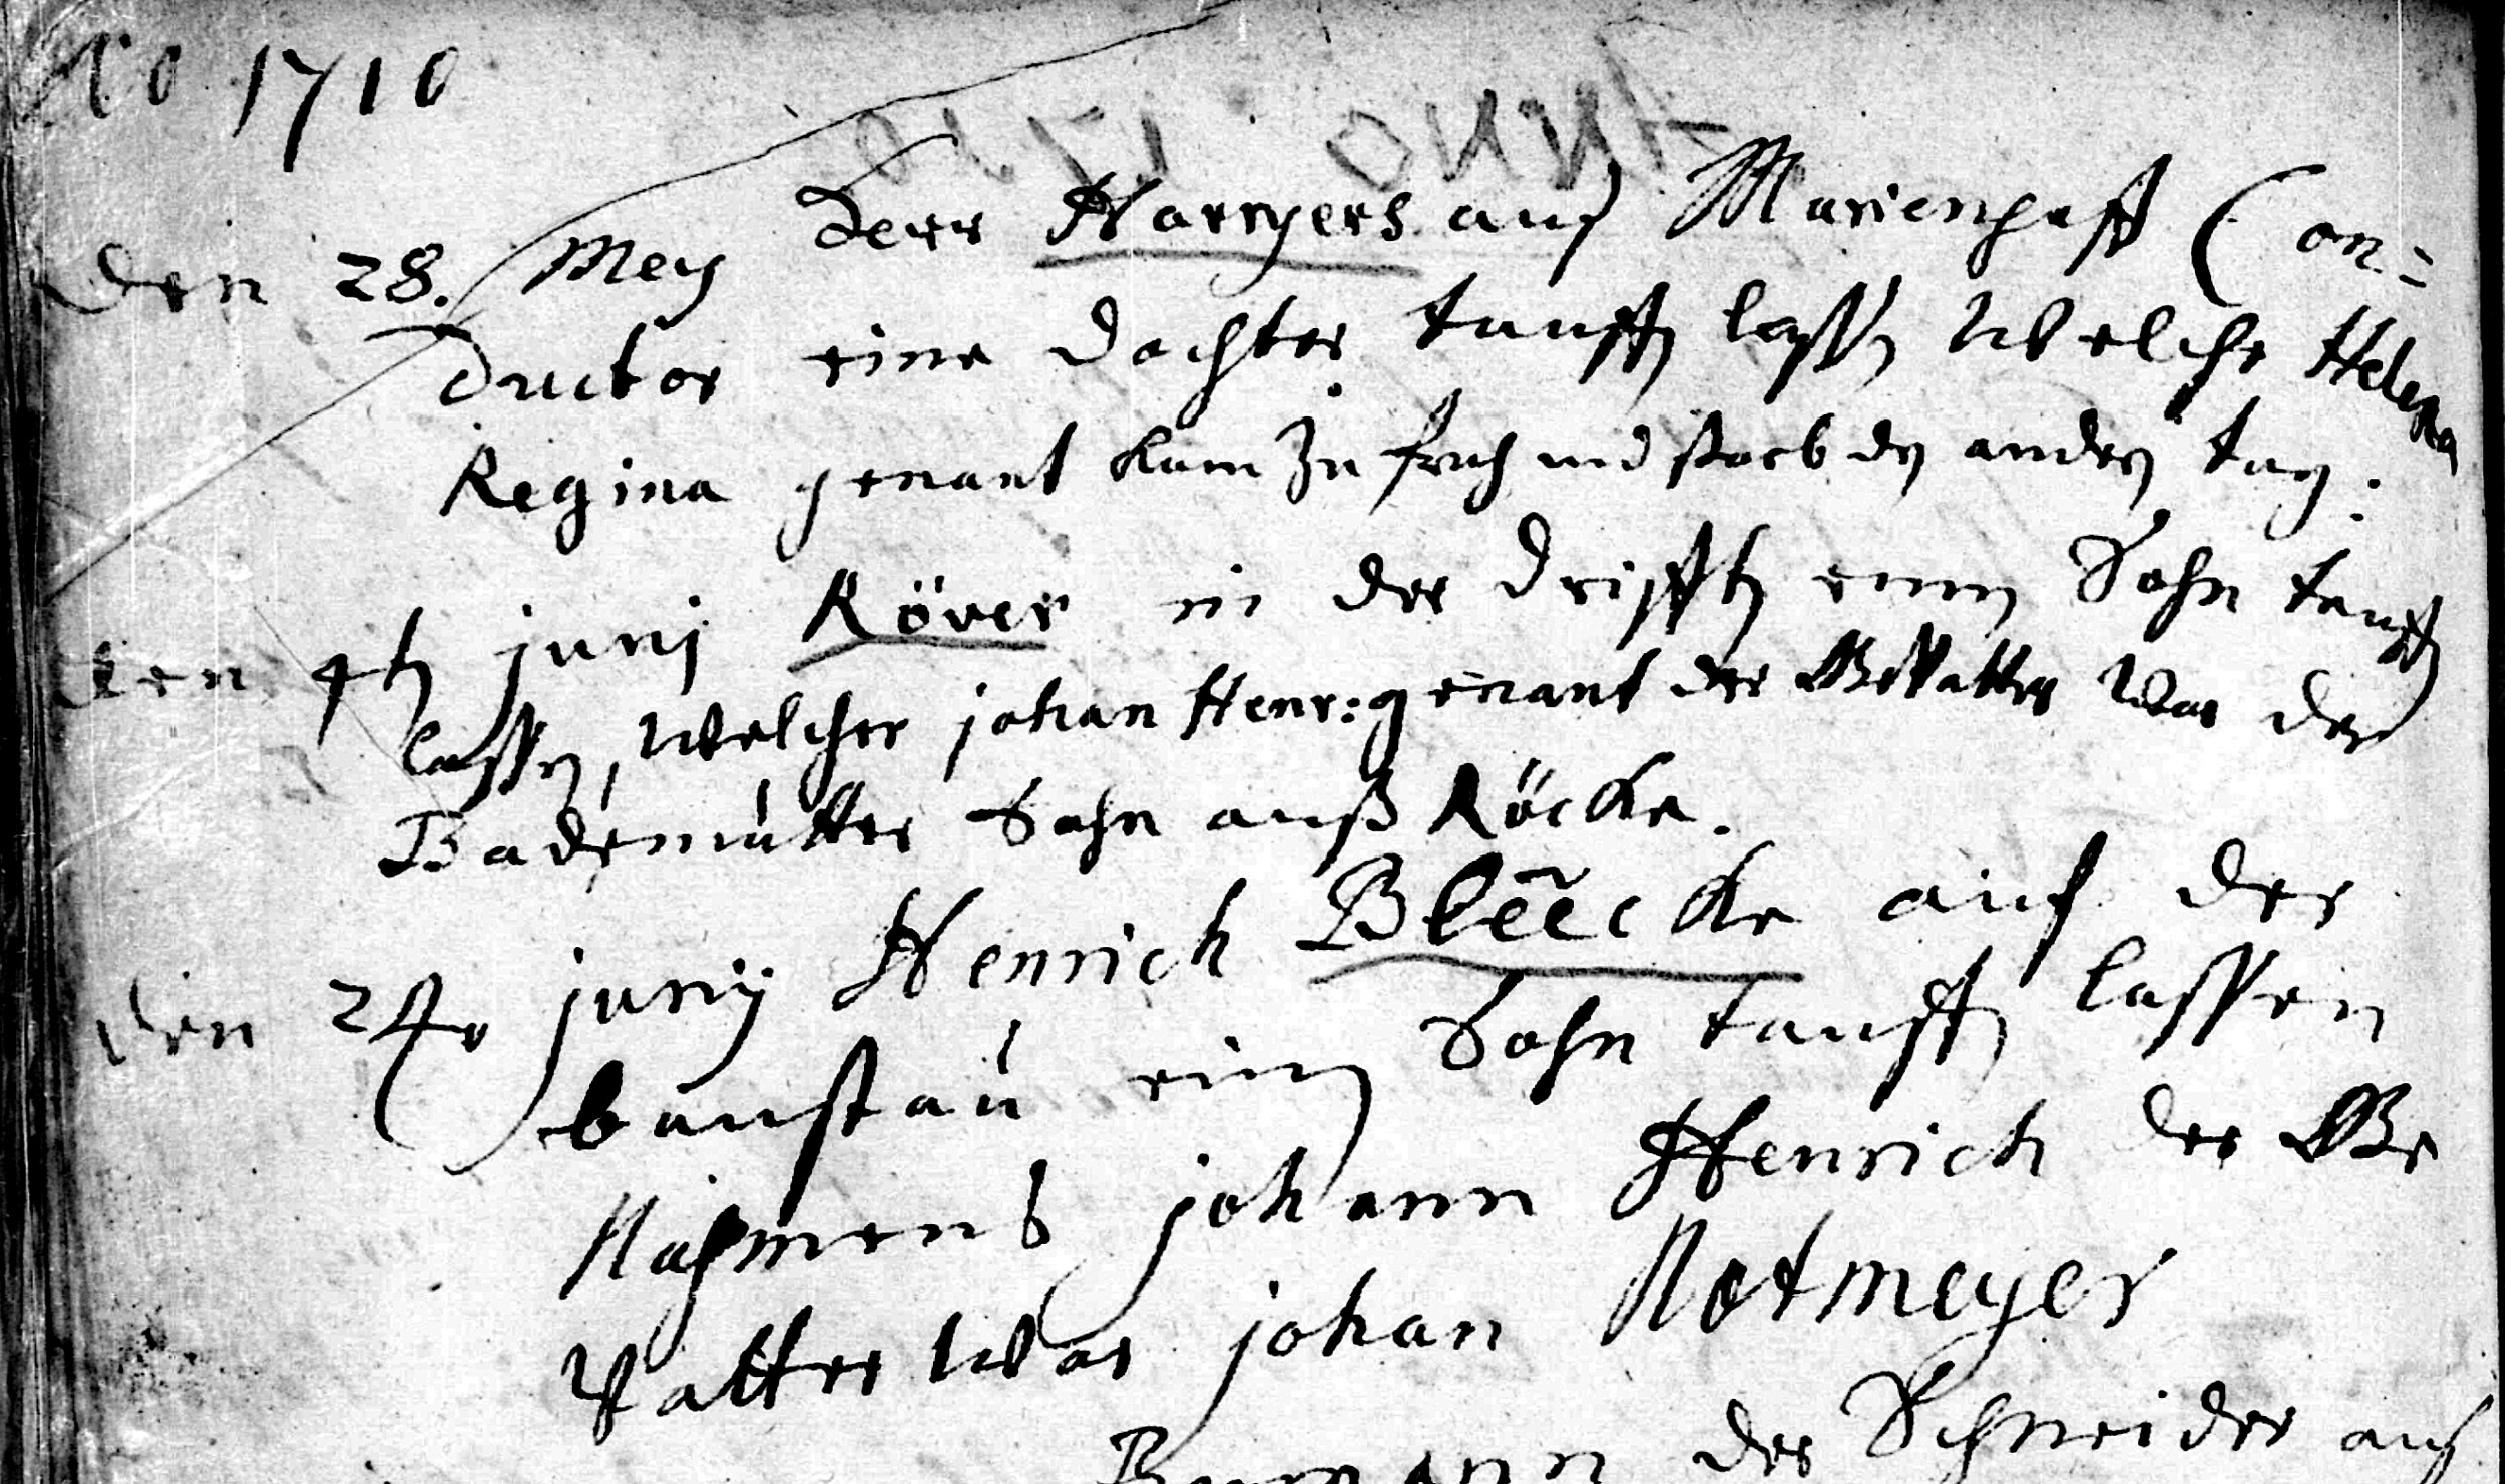 Ao 1710
den 28. Mey Herr Harryers auf Marienhaff Con=
ductor eine dochter tauffen lassen welche Helena
Regina genant kam zu früh und starb den anden tag:
den 4ten junj Röver in der drifften einen Sohn tauffen
lassen, welcher johan Henr: genant der Gevatter war der
Bademutter Sohn auß Röcke.
den 24. junij Henrich Bleecke auf der
baustau einen Sohn tauffen lassen
Nahmens johann Henrich der Ge
vatter war johan Notmeyer
der Schneider auf